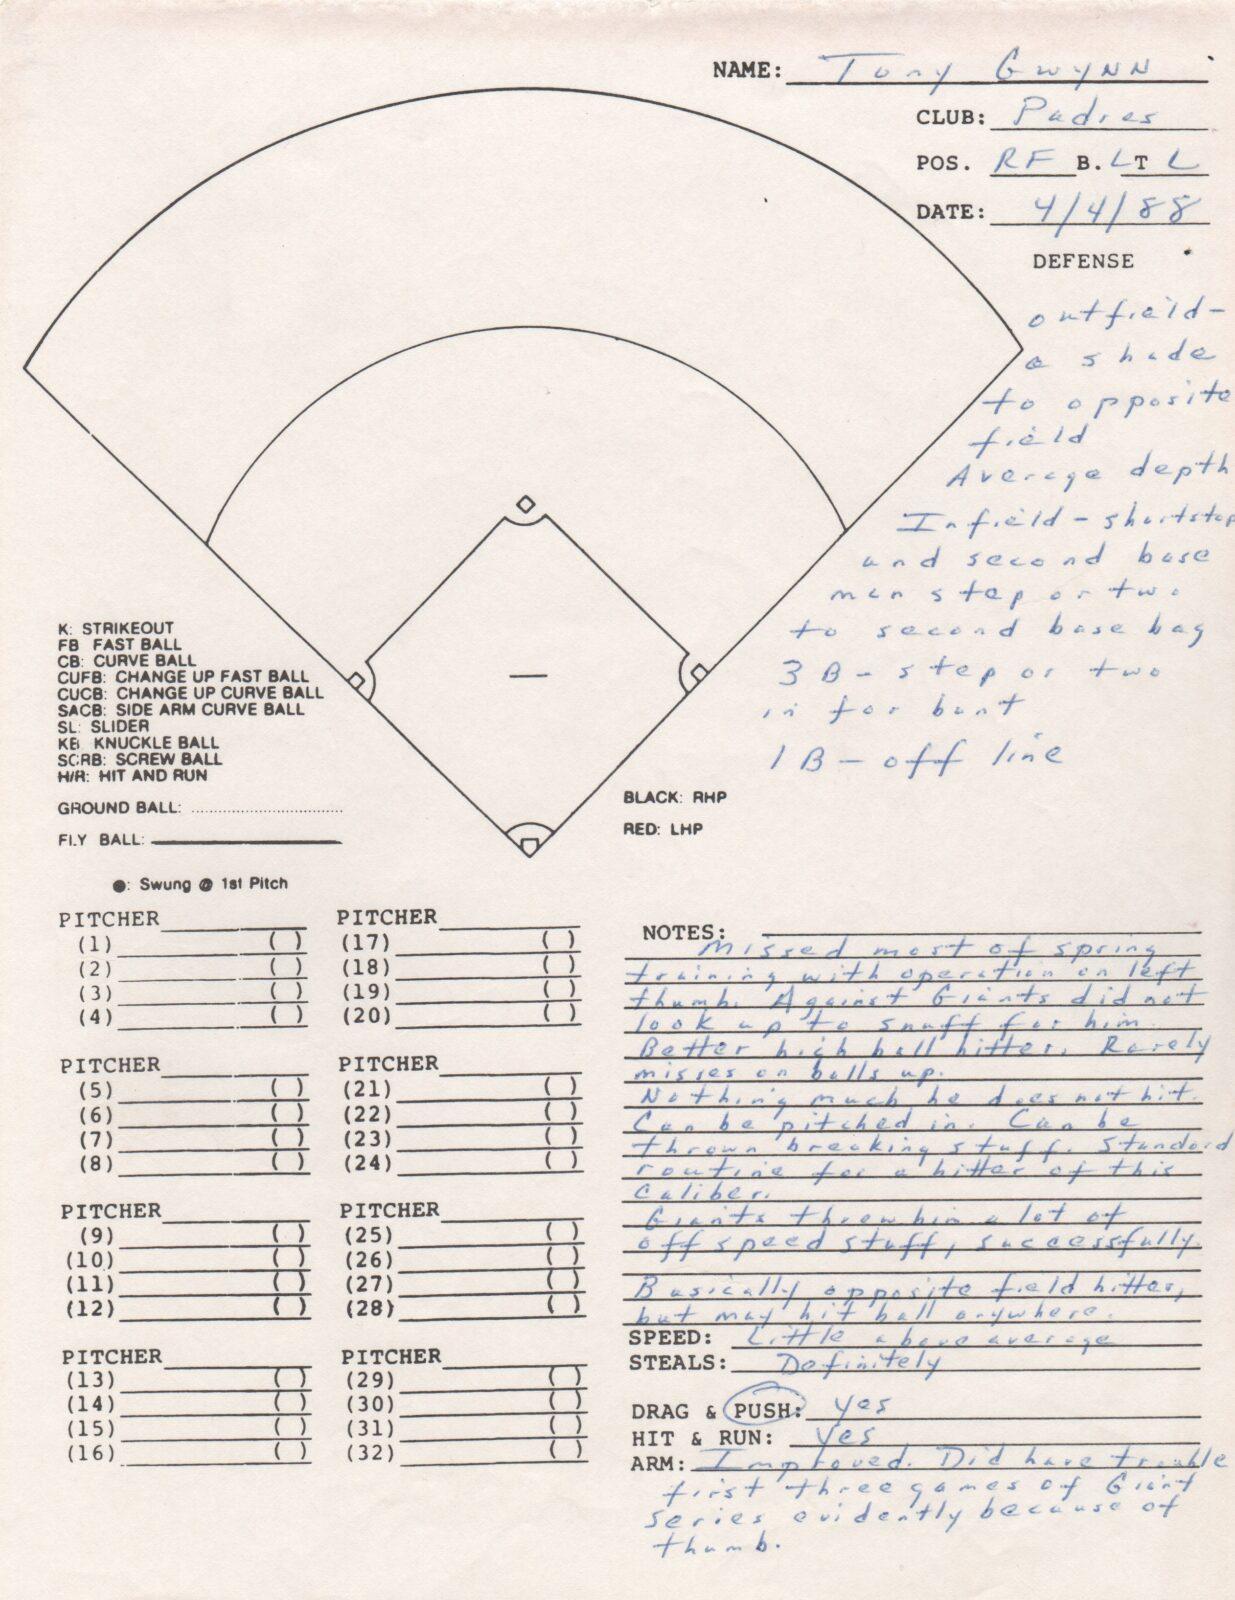 NAME: Tony Gwynn
CLUB: Padres
POS. RF B. L T L
DATE: 4/4/88
DEFENSE
outfield-
a shade
to opposite
field
Average depth
Infield - shortstop
and second base
man step or two
to second base bag
3 B - step or two
in for bunt
1 B - off line
K: STRIKEOUT
FB FAST BALL
CB: CURVE BALL
CUFB: CHANGE UP FAST BALL
CUCB: CHANGE UP CURVE BALL
SACB: SIDE ARM CURVE BALL
SL: SLIDER
KB KNUCKLE BALL
SCRB: SCREW BALL
H/R: HIT AND RUN
GROUND BALL:
FLY BALL:
BLACK: RHP
RED: LHP
●: Swung @ 1st Pitch
PITCHER
(1) ( )
(2) ( )
(3) ( )
(4) ( )
PITCHER
(5) ( )
(6) ( )
(7) ( )
(8) ( )
PITCHER
(9) ( )
(10) ( )
(11) ( )
(12) ( )
PITCHER
(13) ( )
(14) ( )
(15) ( )
(16) ( )
PITCHER
(17) ( )
(18) ( )
(19) ( )
(20) ( )
PITCHER
(21) ( )
(22) ( )
(23) ( )
(24) ( )
PITCHER
(25) ( )
(26) ( )
(27) ( )
(28) ( )
PITCHER
(29) ( )
(30) ( )
(31) ( )
(32) ( )
NOTES:
Missed most of spring
training with operation on left
thumb. Against Giants did not
look up to snuff for him.
Better high ball hitter. Rarely
misses on balls up.
Nothing much he does not hit.
Can be pitched in. Can be
thrown breaking stuff. Standard
routine for a hitter of this
caliber.
Giants threw him a lot of
off speed stuff, successfully.
Basically opposite field hitter,
but may hit ball anywhere.
SPEED: Little above average
STEALS: Definitely
DRAG & PUSH: Yes
HIT & RUN: Yes
ARM: Improved. Did have trouble
first three games of Giant
series evidently because of
thumb.